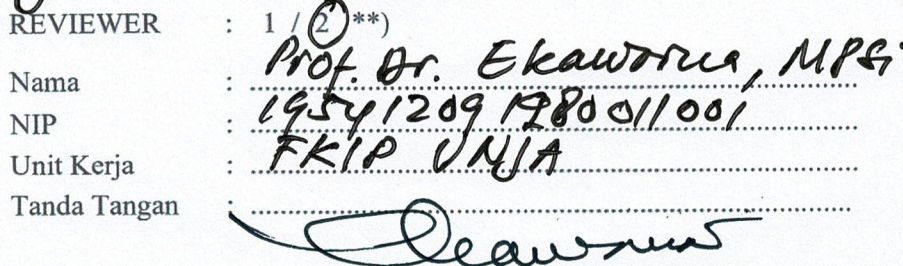 REVIEWER : 1 / 2 **)
Nama : Prof. Dr. Ekawarna, MPSi
NIP : 195412091980011001
Unit Kerja : FKIP UNJA
Tanda Tangan :